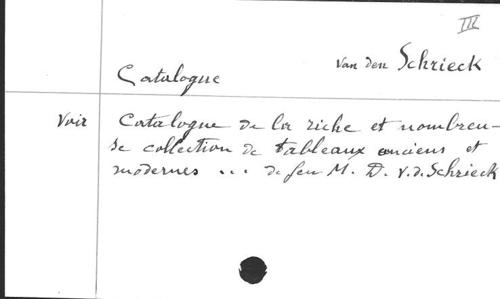 III
van den Schrieck
Catalogue
Voir Catalogue de la riche et nombreu-
se collection de tableaux anciens et
modernes ... de feu M. D. v.d. Schrieck